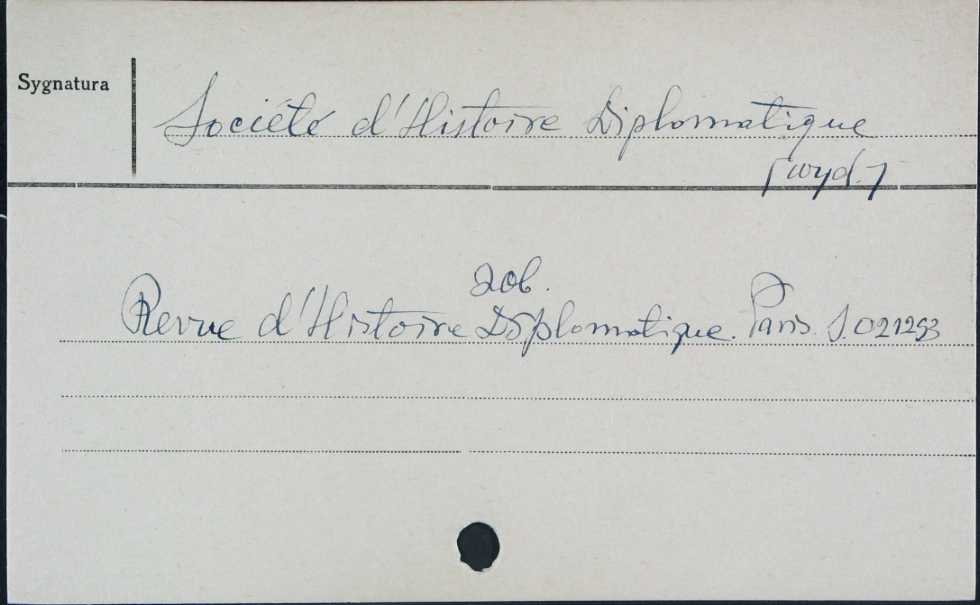 Sygnatura
Société d'Histoire Diplomatique
[wyd.]
zob.
Revue d'Histoire Diplomatique. Paris. S.021293